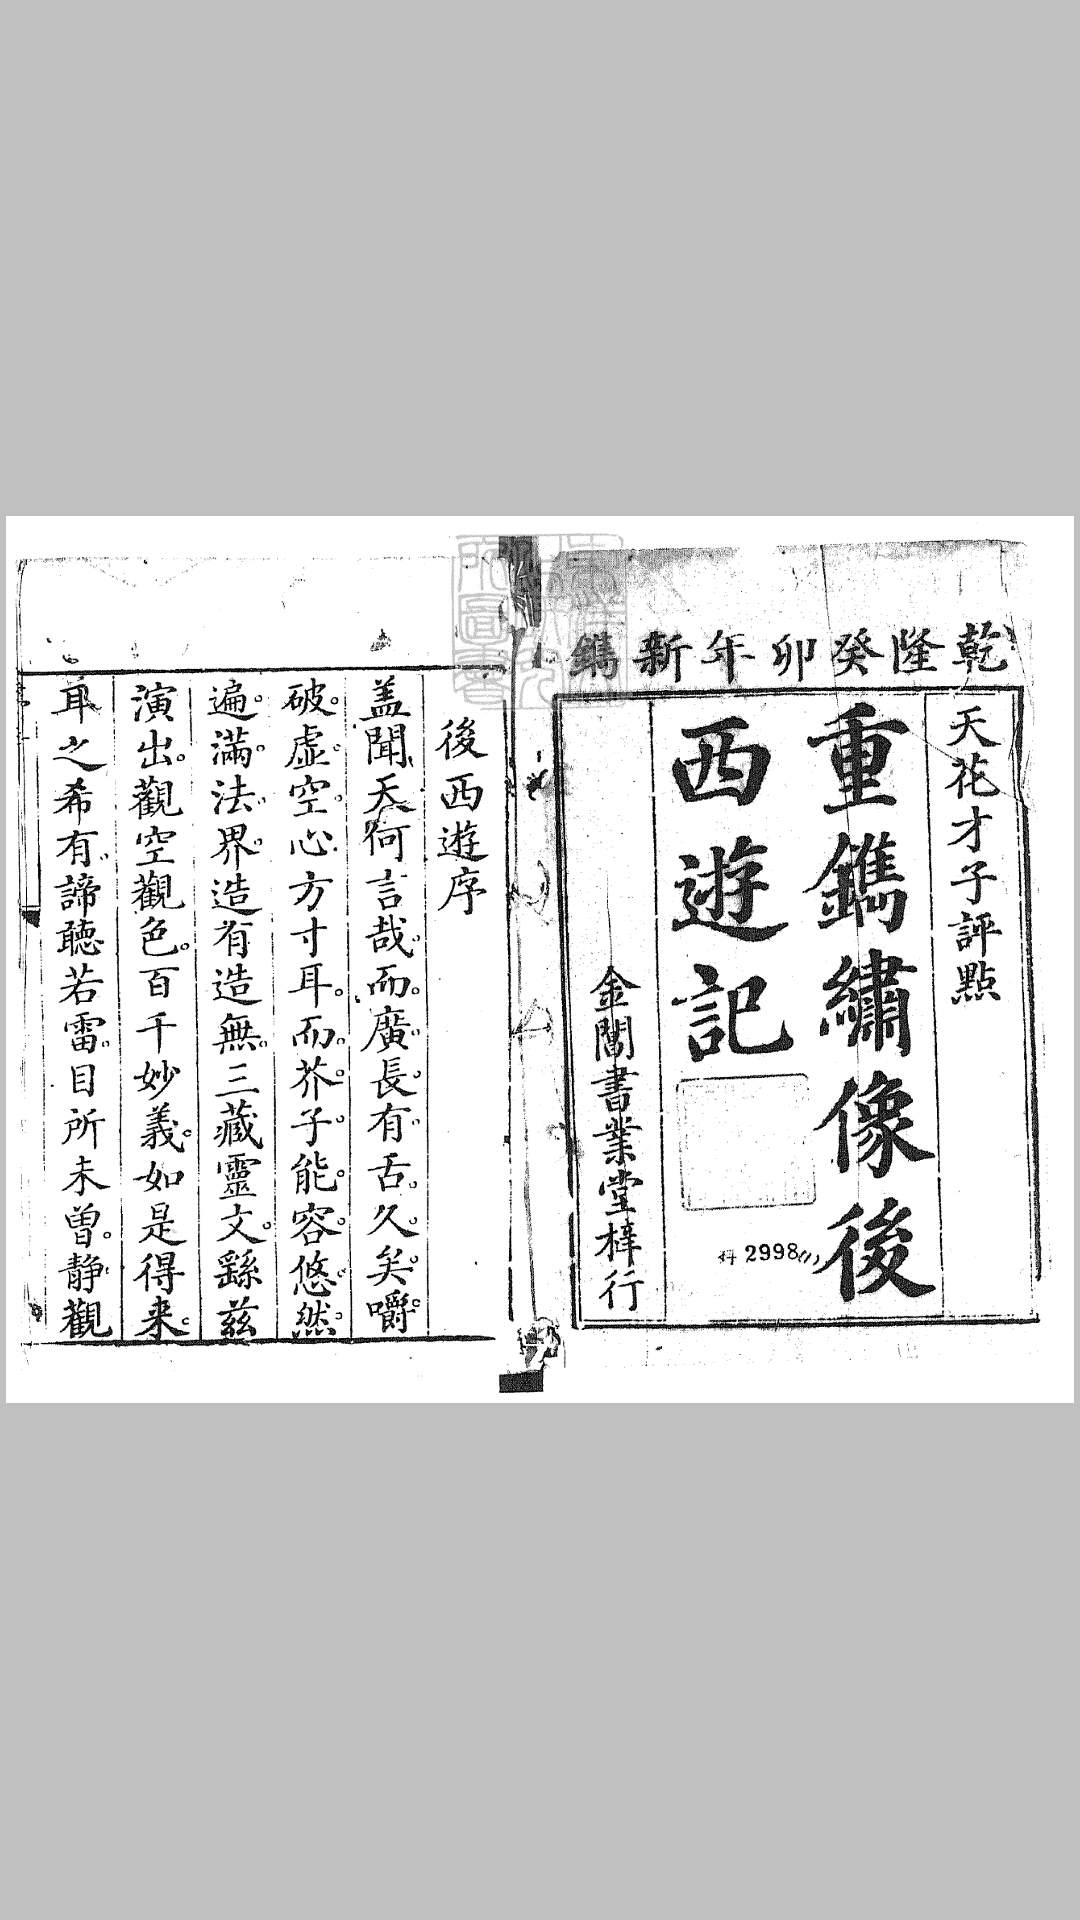 乾隆癸卯年新鐫
天花才子評點
重鐫繡像後
西遊記
金閶書業堂梓行
科2998(1)
後西遊序
盖聞天何言哉而廣長有舌久矣嚼
破虛空心方寸耳而芥子能容悠然
遍滿法界造有造無三藏靈文繇兹
演出觀空觀色百千妙義如是得来
耳之希有諦聽若雷目所未曽静觀